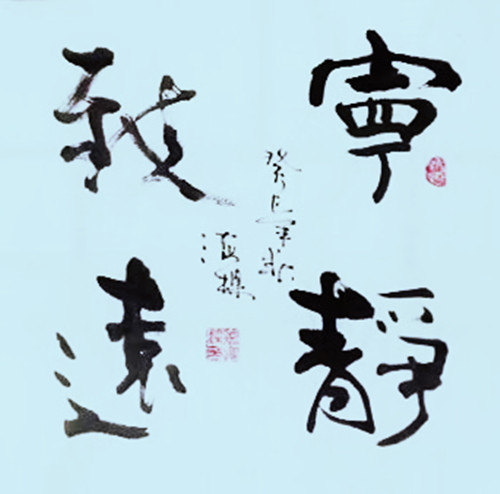 寧靜
致遠
癸巳年秋